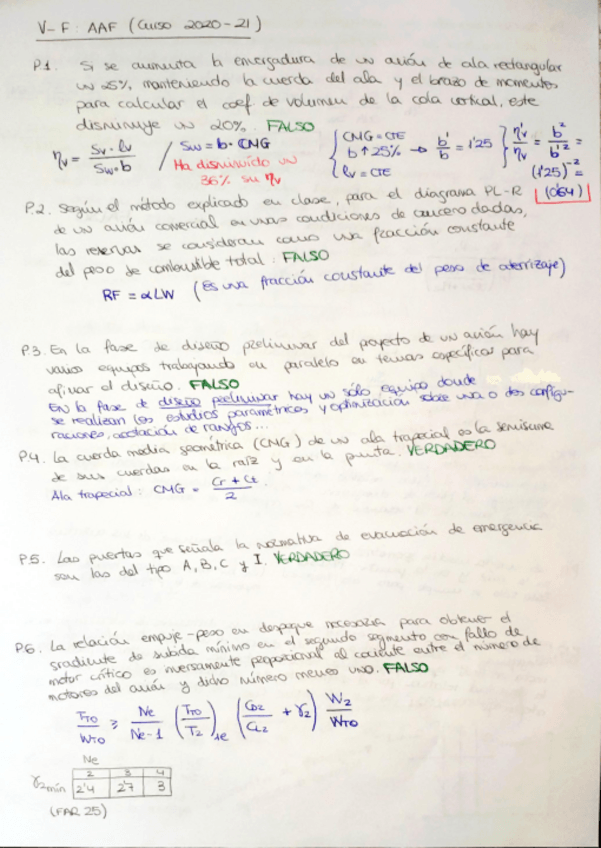 V-F: AAF (Curso 2020-21)
P.1. Si se aumenta la envergadura de un avión de ala rectangular
un 25%, manteniendo la cuerda del ala y el brazo de momentos
para calcular el coef. de volumen de la cola vertical, este
disminuye un 20%. FALSO
ηv = Sv · lv / Sw · b / Sw = b · CMG
Ha disminuido un
36% su ηv
{ CMG = CTE
b ↑ 25% → b'/b = 1'25
lv = CTE
} ηv'/ηv = b²/b'² =
(1'25)⁻² =
(0'64)
P.2. Según el método explicado en clase, para el diagrama PL-R
de un avión comercial en unas condiciones de crucero dadas,
las reservas se consideran como una fracción constante
del peso de combustible total. FALSO
RF = αLW (Es una fracción constante del peso de aterrizaje)
P.3. En la fase de diseño preliminar del proyecto de un avión hay
varios equipos trabajando en paralelo en temas específicos para
afinar el diseño. FALSO
EN la fase de diseño preliminar hay un sólo equipo donde
se realizan los estudios paramétricos y optimización sobre una o dos configu-
raciones, acotación de rangos...
P.4. La cuerda media geométrica (CMG) de un ala trapecial es la semisuma
de sus cuerdas en la raíz y en la punta. VERDADERO
Ala trapecial: CMG = Cr + Ct / 2
P.5. Las puertas que señala la normativa de evacuación de emergencia
son las del tipo A, B, C y I. VERDADERO
P.6. La relación empuje-peso en despegue necesaria para obtener el
gradiente de subida mínimo en el segundo segmento con fallo de
motor crítico es inversamente proporcional al cociente entre el número de
motores del avión y dicho número menos uno. FALSO
TTO/WTO ≥ Ne/Ne-1 (TTO/T2)1e (CD2/CL2 + γ2) W2/WTO
Ne
2 3 4
γ2mín 2'4 2'7 3
(FAR 25)